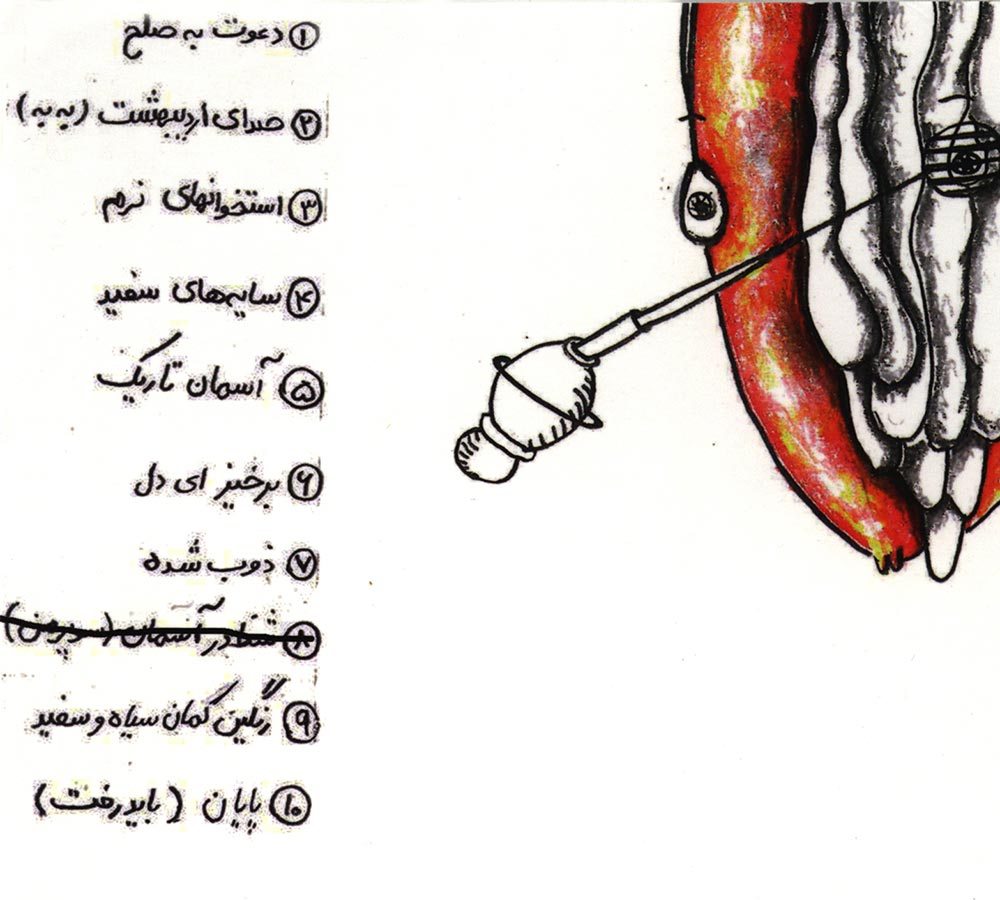 ۱ دعوت به صلح
۲ صدای اردیبهشت (یه یه)
۳ استخوانهای نرم
۴ سایه‌های سفید
۵ آسمان تاریک
۶ برخیز ای دل
۷ ذوب شده
۸ شنا در آسمان
۹ رنگین کمان سیاه و سفید
۱۰ پایان (باید رفت)